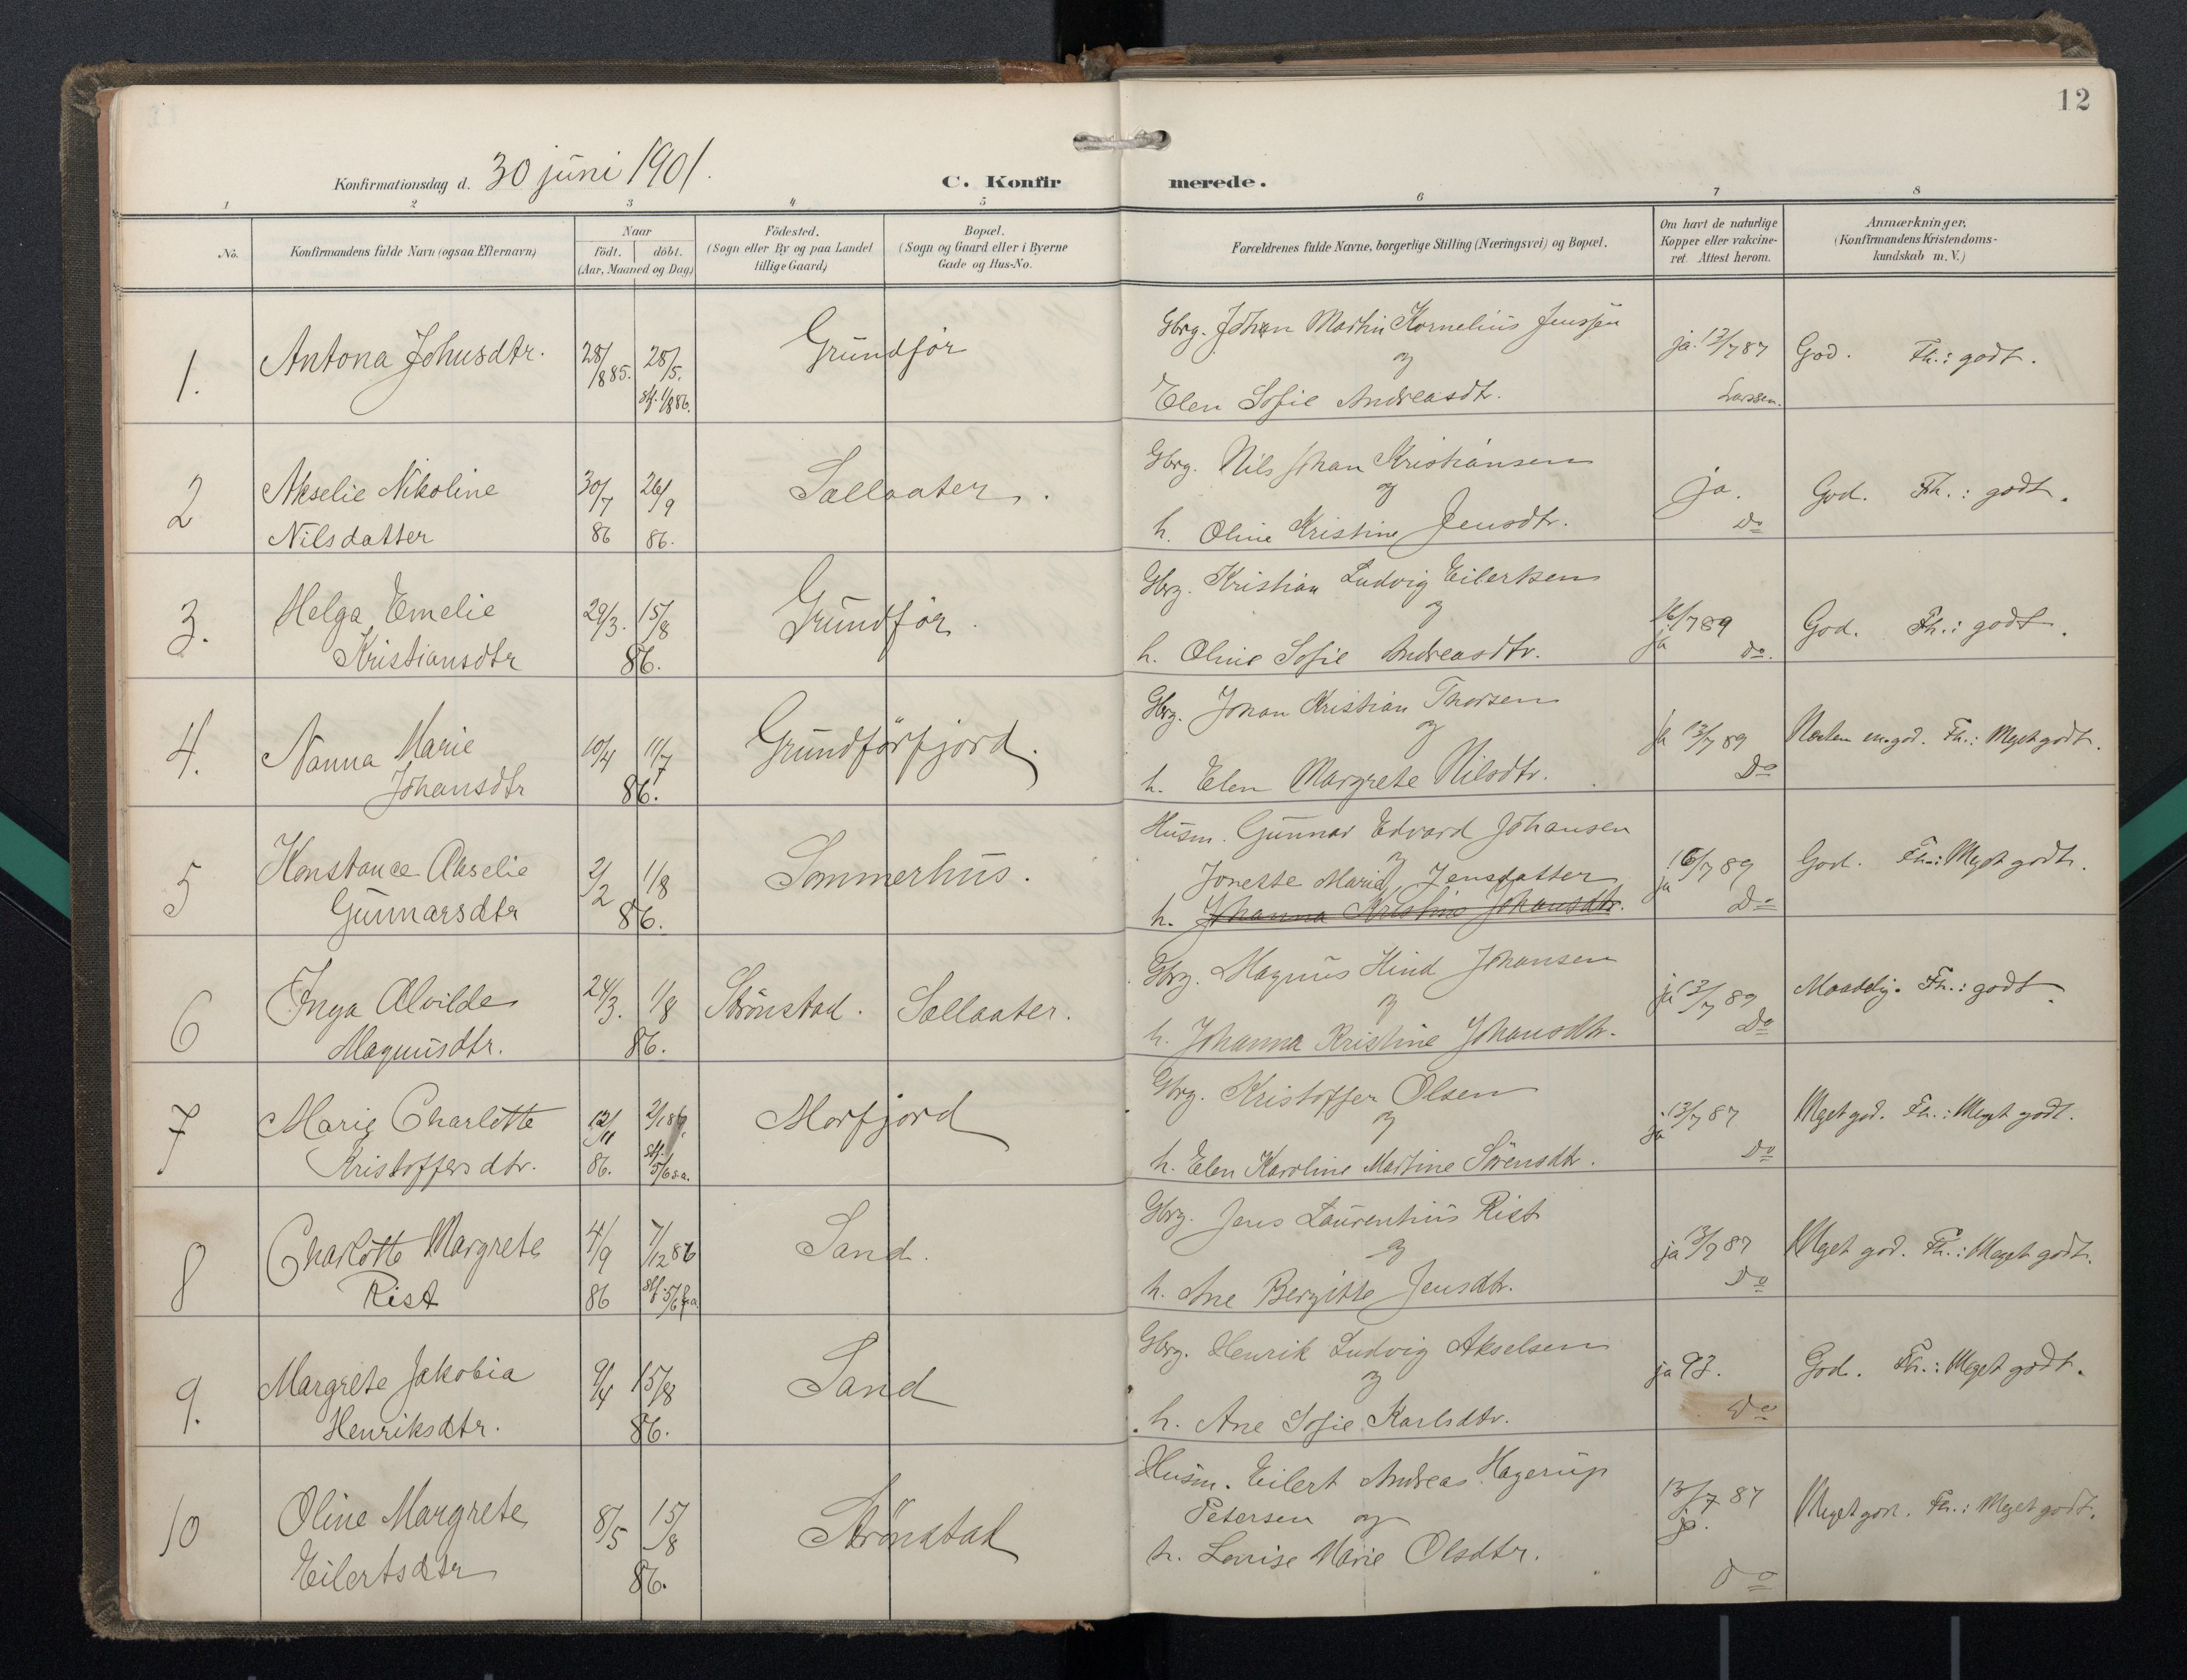 12
Konfirmationsdag d. 30 juni 1901.
C. Konfirmerede.
1 2 3 4 5 6 7 8
No.
Konfirmandens fulde Navn (ogsaa Efternavn)
Naar
født. døbt.
(Aar, Maaned og Dag)
Fødested.
(Sogn eller By og paa Landet
tillige Gaard)
Bopæl.
(Sogn og Gaard eller i Byerne
Gade og Hus-No.
Forældrenes fulde Navne, borgerlige Stilling (Næringsvei) og Bopæl.
Om havt de naturlige
Kopper eller vakcine-
ret. Attest herom.
Anmærkninger,
(Konfirmandens Kristendoms-
kundskab m. V.)
1. Antona Johnsdtr. 28/1885. 28/5. stf. 1/886.
Grundfør
Gbrg. Johan Martin Kornelius Jenssen
og
Elen Sofie Andreasdtr.
ja. 13/787 Larssen.
God. Fh.: godt.
2 Akselie Nikoline
Nilsdatter
30/7 86 26/9 86.
Sellaater.
Gbrg. Nils Johan Kristiansen
og
h. Oline Kristine Jensdtr.
ja. Do
God. Fh.: godt.
3. Helga Emelie
Kristiansdtr
29/3. 15/8 86.
Grundfør.
Gbrg. Kristian Ludvig Eilertsen
og
h. Oline Sofie Andreasdtr.
16/789 ja do.
God. Fh.: godt.
4. Nanna Marie
Johansdtr
10/4 11/7 86.
Grundførfjord.
Gbrg. Johan Kristian Thorsen
og
h. Elen Margrete Nilsdtr.
ja 13/789 Do
Næsten en. god. Fh.: Meget godt.
5 Konstance Akselie
Gunnarsdtr
2/2 1/8 86.
Sommerhus.
Husm. Gunnar Edvard Johansen
og
Jonette Marie Jensdatter
h. Johanna Kristine Johansdtr.
16/789 ja Do
God. Fh.: Meget godt.
6 Inga Alvilde
Magnusdtr.
24/3. 1/8 86.
Strønstad. Sellaater.
Gbrg. Magnus Hind Johansen
og
h. Johanna Kristine Johansdtr.
ja 13/7 89 Do
Maadelig. Fh.: godt.
7 Marie Charlotte
Kristoffersdtr.
12/11 86. stf. 5/6 s.a.
Morfjord
Gbrg. Kristoffer Olsen
og
h. Elen Karoline Martine Sørensdtr.
ja 13/787 Do
Meget god. Fh.: Meget godt.
8 Charlotte Margrete
Rist
4/9 86 7/12 86 stf. 5/6
Sand.
Gbrg. Jens Laurentius Rist
og
h. Ane Bergitte Jensdtr.
ja 13/787 Do
Meget god. Fh.: Meget godt.
9. Margrete Jakobia
Henriksdtr.
9/4 15/8 86.
Sand
Gbrg. Henrik Ludvig Akselsen
og
h. Ane Sofie Karlsdtr.
ja 93. Do
God. Fh.: Meget godt.
10 Oline Margrete
Eilertsdtr
8/5 15/8 86.
Strønstad
Husm. Eilert Andreas Hagerup
Petersen og
h. Lovise Marie Olsdtr.
13/7 87 ja. Do
Meget god. Fh.: Meget godt.